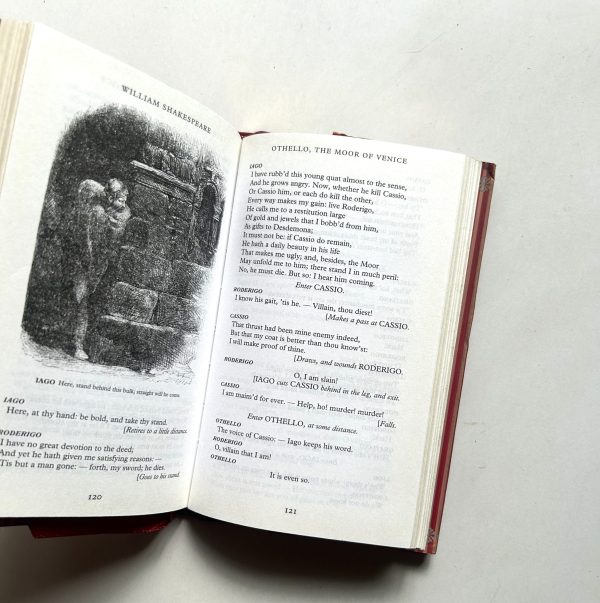 WILLIAM SHAKESPEARE
IAGO Here, stand behind this bulk; straight will he come
IAGO
Here, at thy hand: be bold, and take thy stand.
[Retires to a little distance.
RODERIGO
I have no great devotion to the deed;
And yet he hath given me satisfying reasons: —
'Tis but a man gone: — forth, my sword; he dies.
[Goes to his stand.
120
OTHELLO, THE MOOR OF VENICE
IAGO
I have rubb'd this young quat almost to the sense,
And he grows angry. Now, whether he kill Cassio,
Or Cassio him, or each do kill the other,
Every way makes my gain: live Roderigo,
He calls me to a restitution large
Of gold and jewels that I bobb'd from him,
As gifts to Desdemona;
It must not be: if Cassio do remain,
He hath a daily beauty in his life
That makes me ugly; and, besides, the Moor
May unfold me to him; there stand I in much peril:
No, he must die. But so: I hear him coming.
Enter CASSIO.
RODERIGO
I know his gait, 'tis he. — Villain, thou diest!
[Makes a pass at CASSIO.
CASSIO
That thrust had been mine enemy indeed,
But that my coat is better than thou know'st:
I will make proof of thine.
[Draws, and wounds RODERIGO.
RODERIGO
O, I am slain!
[IAGO cuts CASSIO behind in the leg, and exit.
CASSIO
I am maim'd for ever. — Help, ho! murder! murder!
[Falls.
Enter OTHELLO, at some distance.
OTHELLO
The voice of Cassio: — Iago keeps his word.
RODERIGO
O, villain that I am!
OTHELLO
It is even so.
121